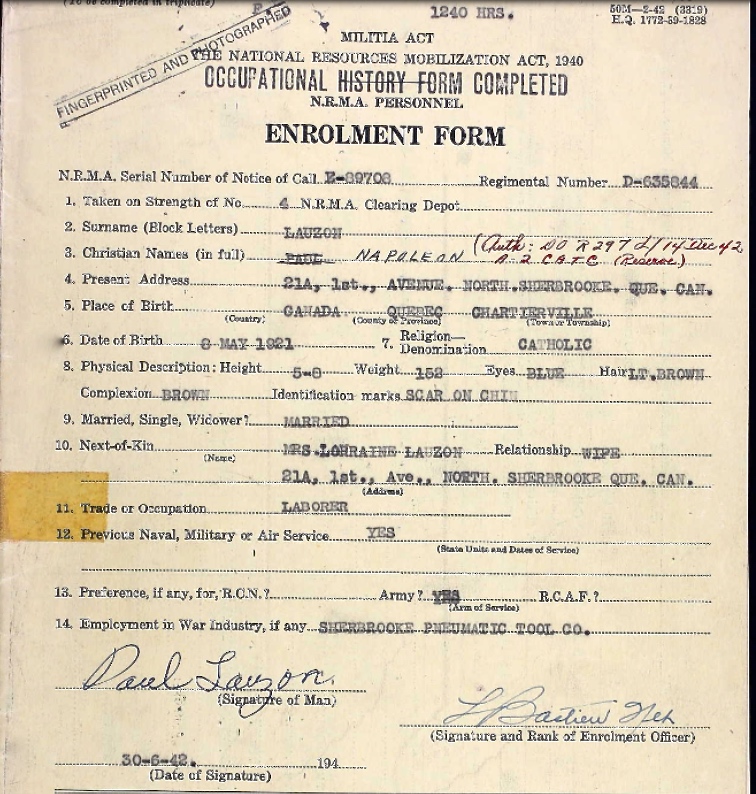 (To be completed in triplicate)
1240 HRS.
50M—2-42 (3319)
H.Q. 1772-39-1828
FINGERPRINTED AND PHOTOGRAPHED
MILITIA ACT
THE NATIONAL RESOURCES MOBILIZATION ACT, 1940
OCCUPATIONAL HISTORY FORM COMPLETED
N.R.M.A. PERSONNEL
ENROLMENT FORM
N.R.M.A. Serial Number of Notice of Call E-89708 Regimental Number D-635844
1. Taken on Strength of No. 4 N.R.M.A. Clearing Depot
2. Surname (Block Letters) LAUZON
3. Christian Names (in full) PAUL NAPOLEON (Auth: DO R 297 d/14 Dec 42
A-2 CATC (Reserve)
4. Present Address 21A, 1st., AVENUE. NORTH.SHERBROOKE. QUE. CAN.
5. Place of Birth CANADA QUEBEC CHARTIERVILLE
(Country) (County or Province) (Town or Township)
6. Date of Birth 8 MAY 1921 7. Religion—
Denomination CATHOLIC
8. Physical Description: Height 5-8 Weight 152 Eyes BLUE Hair LT.BROWN
Complexion BROWN Identification marks SCAR ON CHIN
9. Married, Single, Widower? MARRIED
10. Next-of-Kin MRS.LORRAINE LAUZON Relationship WIFE
(Name)
21A, 1st., Ave., NORTH. SHERBROOKE QUE. CAN.
(Address)
11. Trade or Occupation LABORER
12. Previous Naval, Military or Air Service YES
(State Units and Dates of Service)
13. Preference, if any, for, R.C.N.? Army? YES R.C.A.F.?
(Arm of Service)
14. Employment in War Industry, if any SHERBROOKE PNEUMATIC TOOL CO.
Paul Lauzon.
(Signature of Man)
L Bastien
(Signature and Rank of Enrolment Officer)
30-6-42. 194
(Date of Signature)